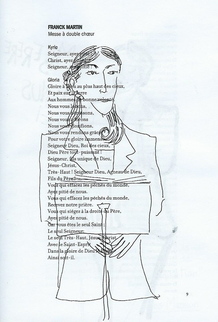 FRANCK MARTIN
Messe à double chœur
Kyrie
Seigneur, ayez
Christ, ayez
Seigneur,
Gloria
Gloire à Dieu au plus haut des cieux,
Et paix sur
Aux hommes de bonne
Nous vous louons,
Nous vous
Nous vous
Nous vous
Nous vous rendons grâces
Pour votre gloire
Seigneur Dieu, Roi des cieux,
Dieu Père tout-puissant
Seigneur, Fils unique de Dieu,
Jésus-Christ,
Très-Haut ! Seigneur Dieu, Agneau de Dieu,
Fils du Père
Vous qui effacez les péchés du monde,
Ayez pitié de nous.
Vous qui effacez les péchés du monde,
Recevez notre prière.
Vous qui siégez à la droite du Père,
Ayez pitié de nous.
Car vous êtes le seul Saint
Le seul Seigneur
Le seul Très-Haut, Jésus
Avec le Saint-Esprit
Dans la gloire de Dieu
Ainsi soit-il.